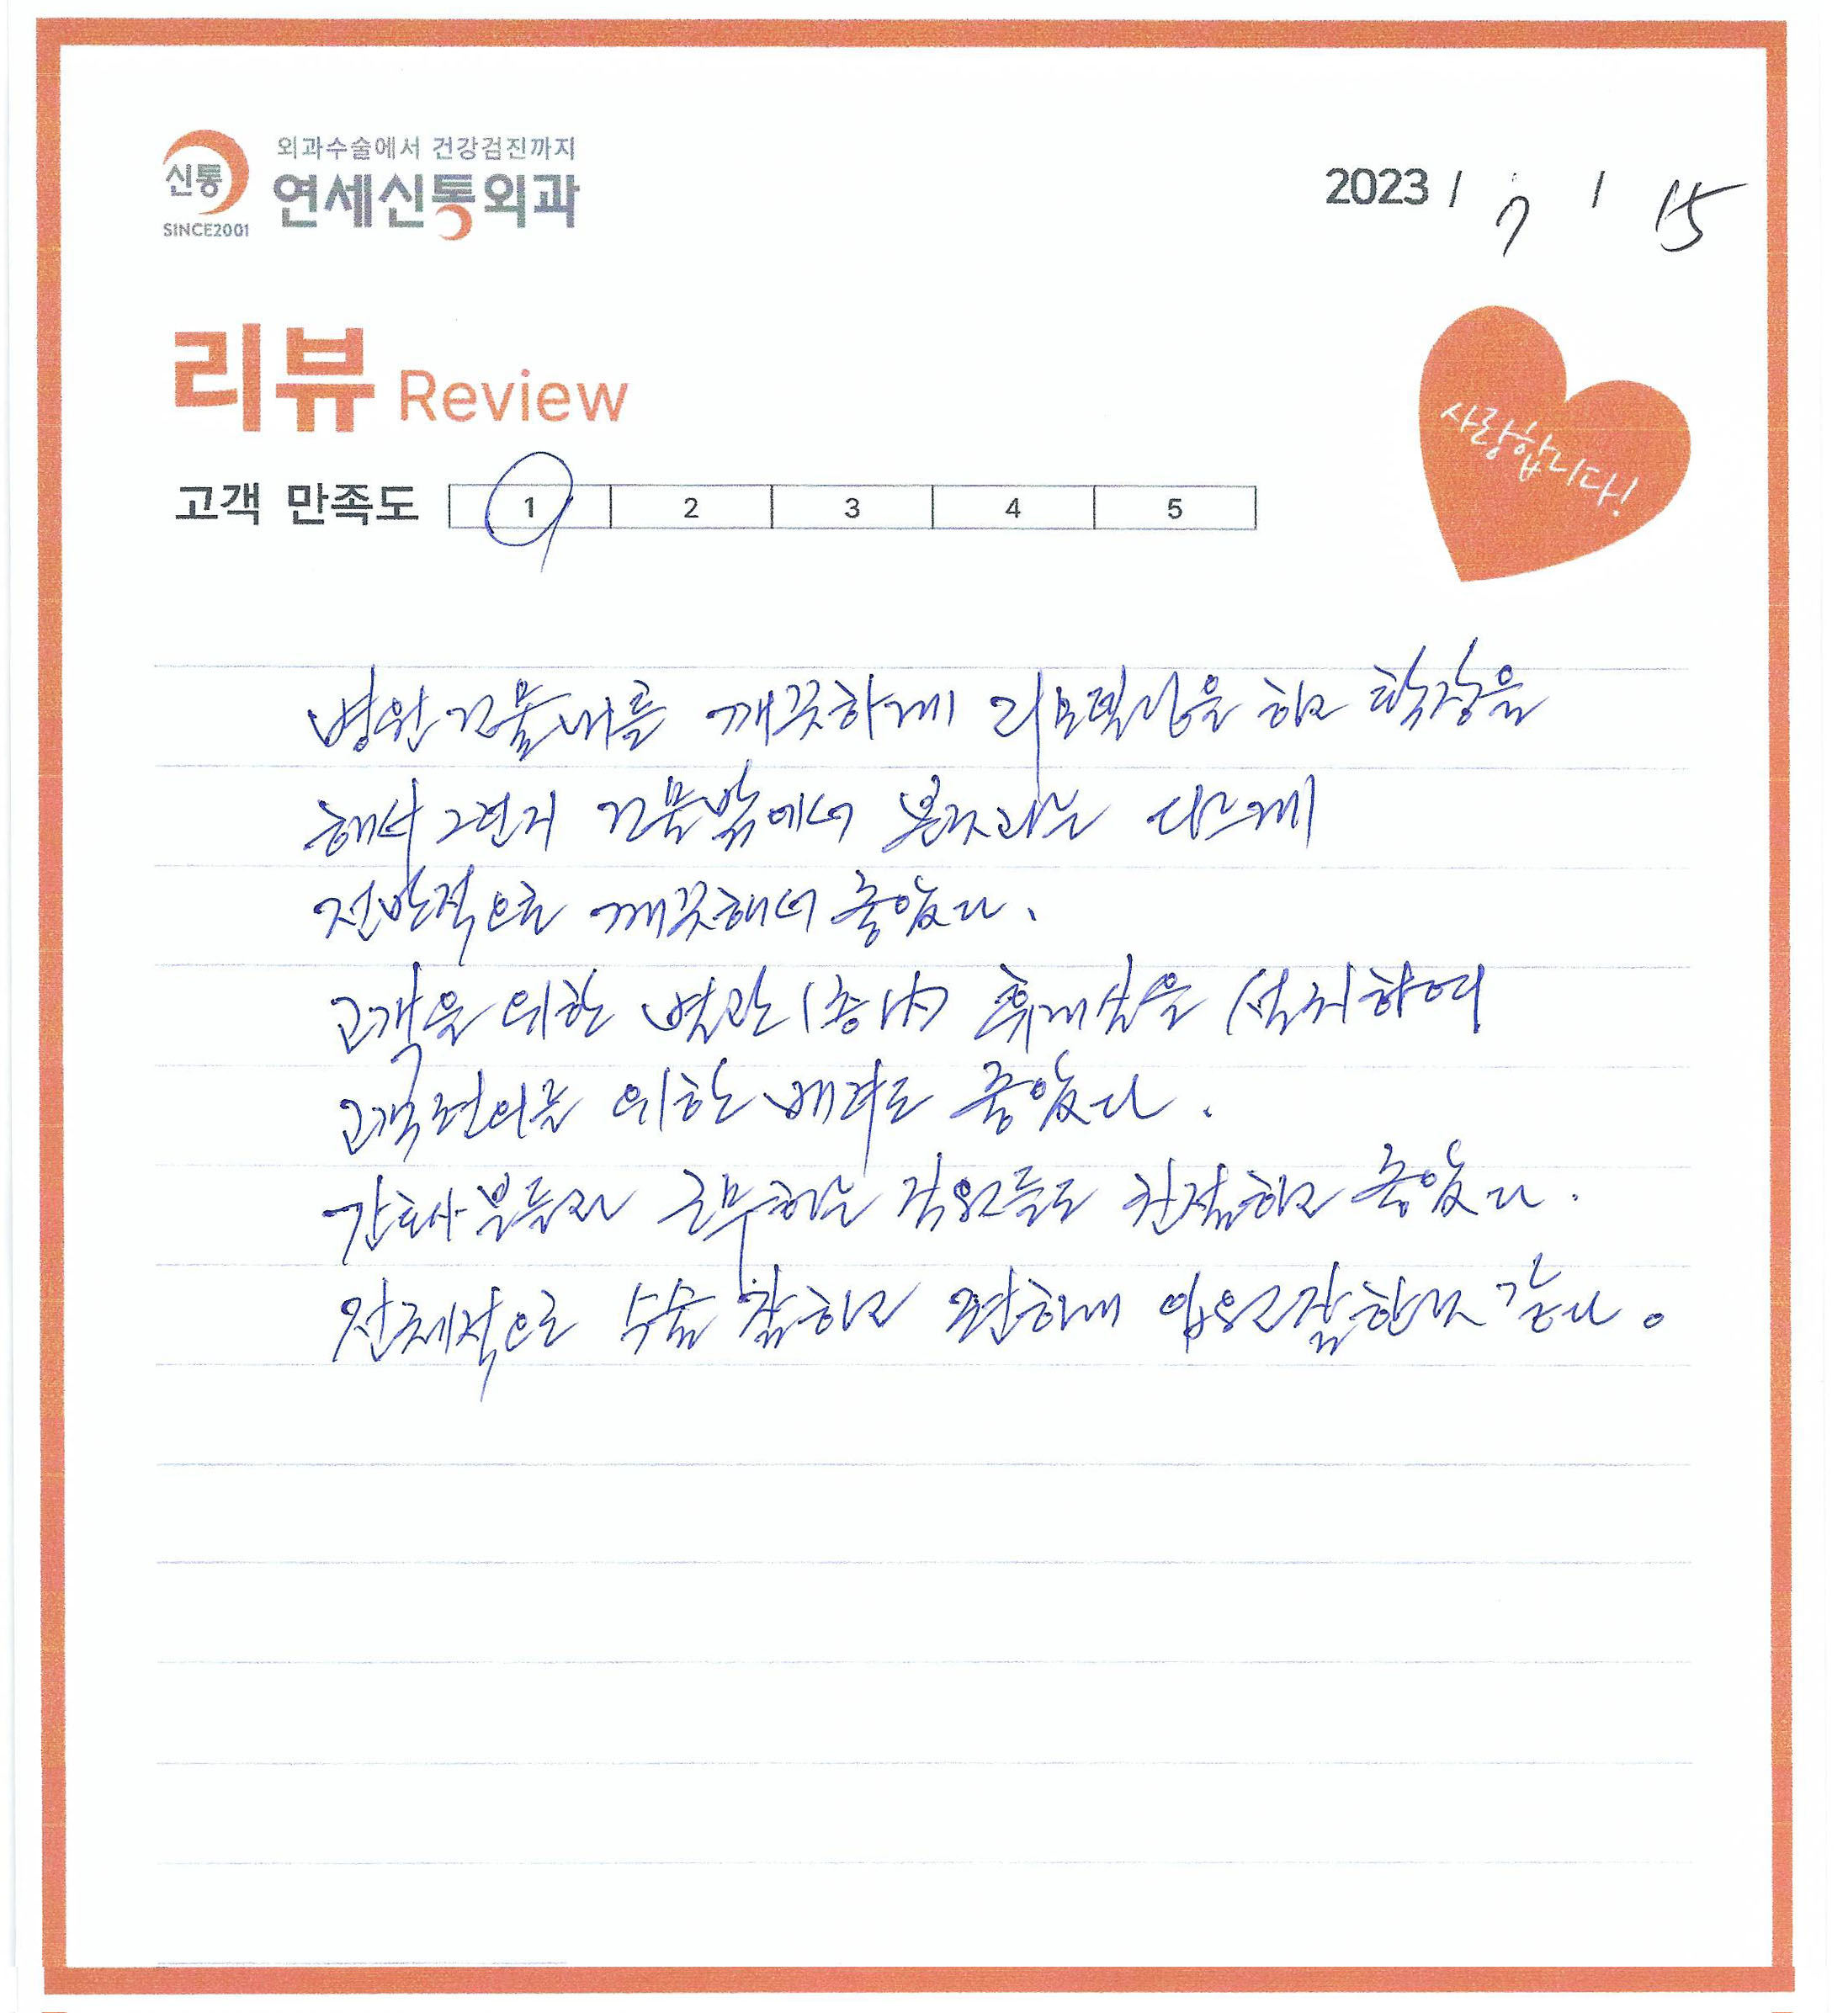 신통
SINCE2001
외과수술에서 건강검진까지
연세신통외과
2023 / 7 / 15
리뷰 Review
사랑합니다!
고객 만족도 1 2 3 4 5
병원건물내를 깨끗하게 리모델링을 하고 확장을
해서 그런지 건물밖에서 본것과는 다르게
전반적으로 깨끗해서 좋았다.
고객을 위한 별관 1층內 휴게실을 설치하여
고객편의를 위한 배려도 좋았다.
간호사분들과 근무하는 직원들도 친절하고 좋았다.
전체적으로 수술 잘하고 편하게 입원잘한것 같다.